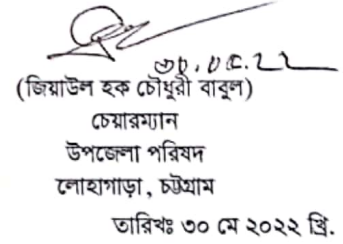 ৩০.০৫.২২
(জিয়াউল হক চৌধুরী বাবুল)
চেয়ারম্যান
উপজেলা পরিষদ
লোহাগাড়া, চট্টগ্রাম
তারিখঃ ৩০ মে ২০২২ খ্রি.